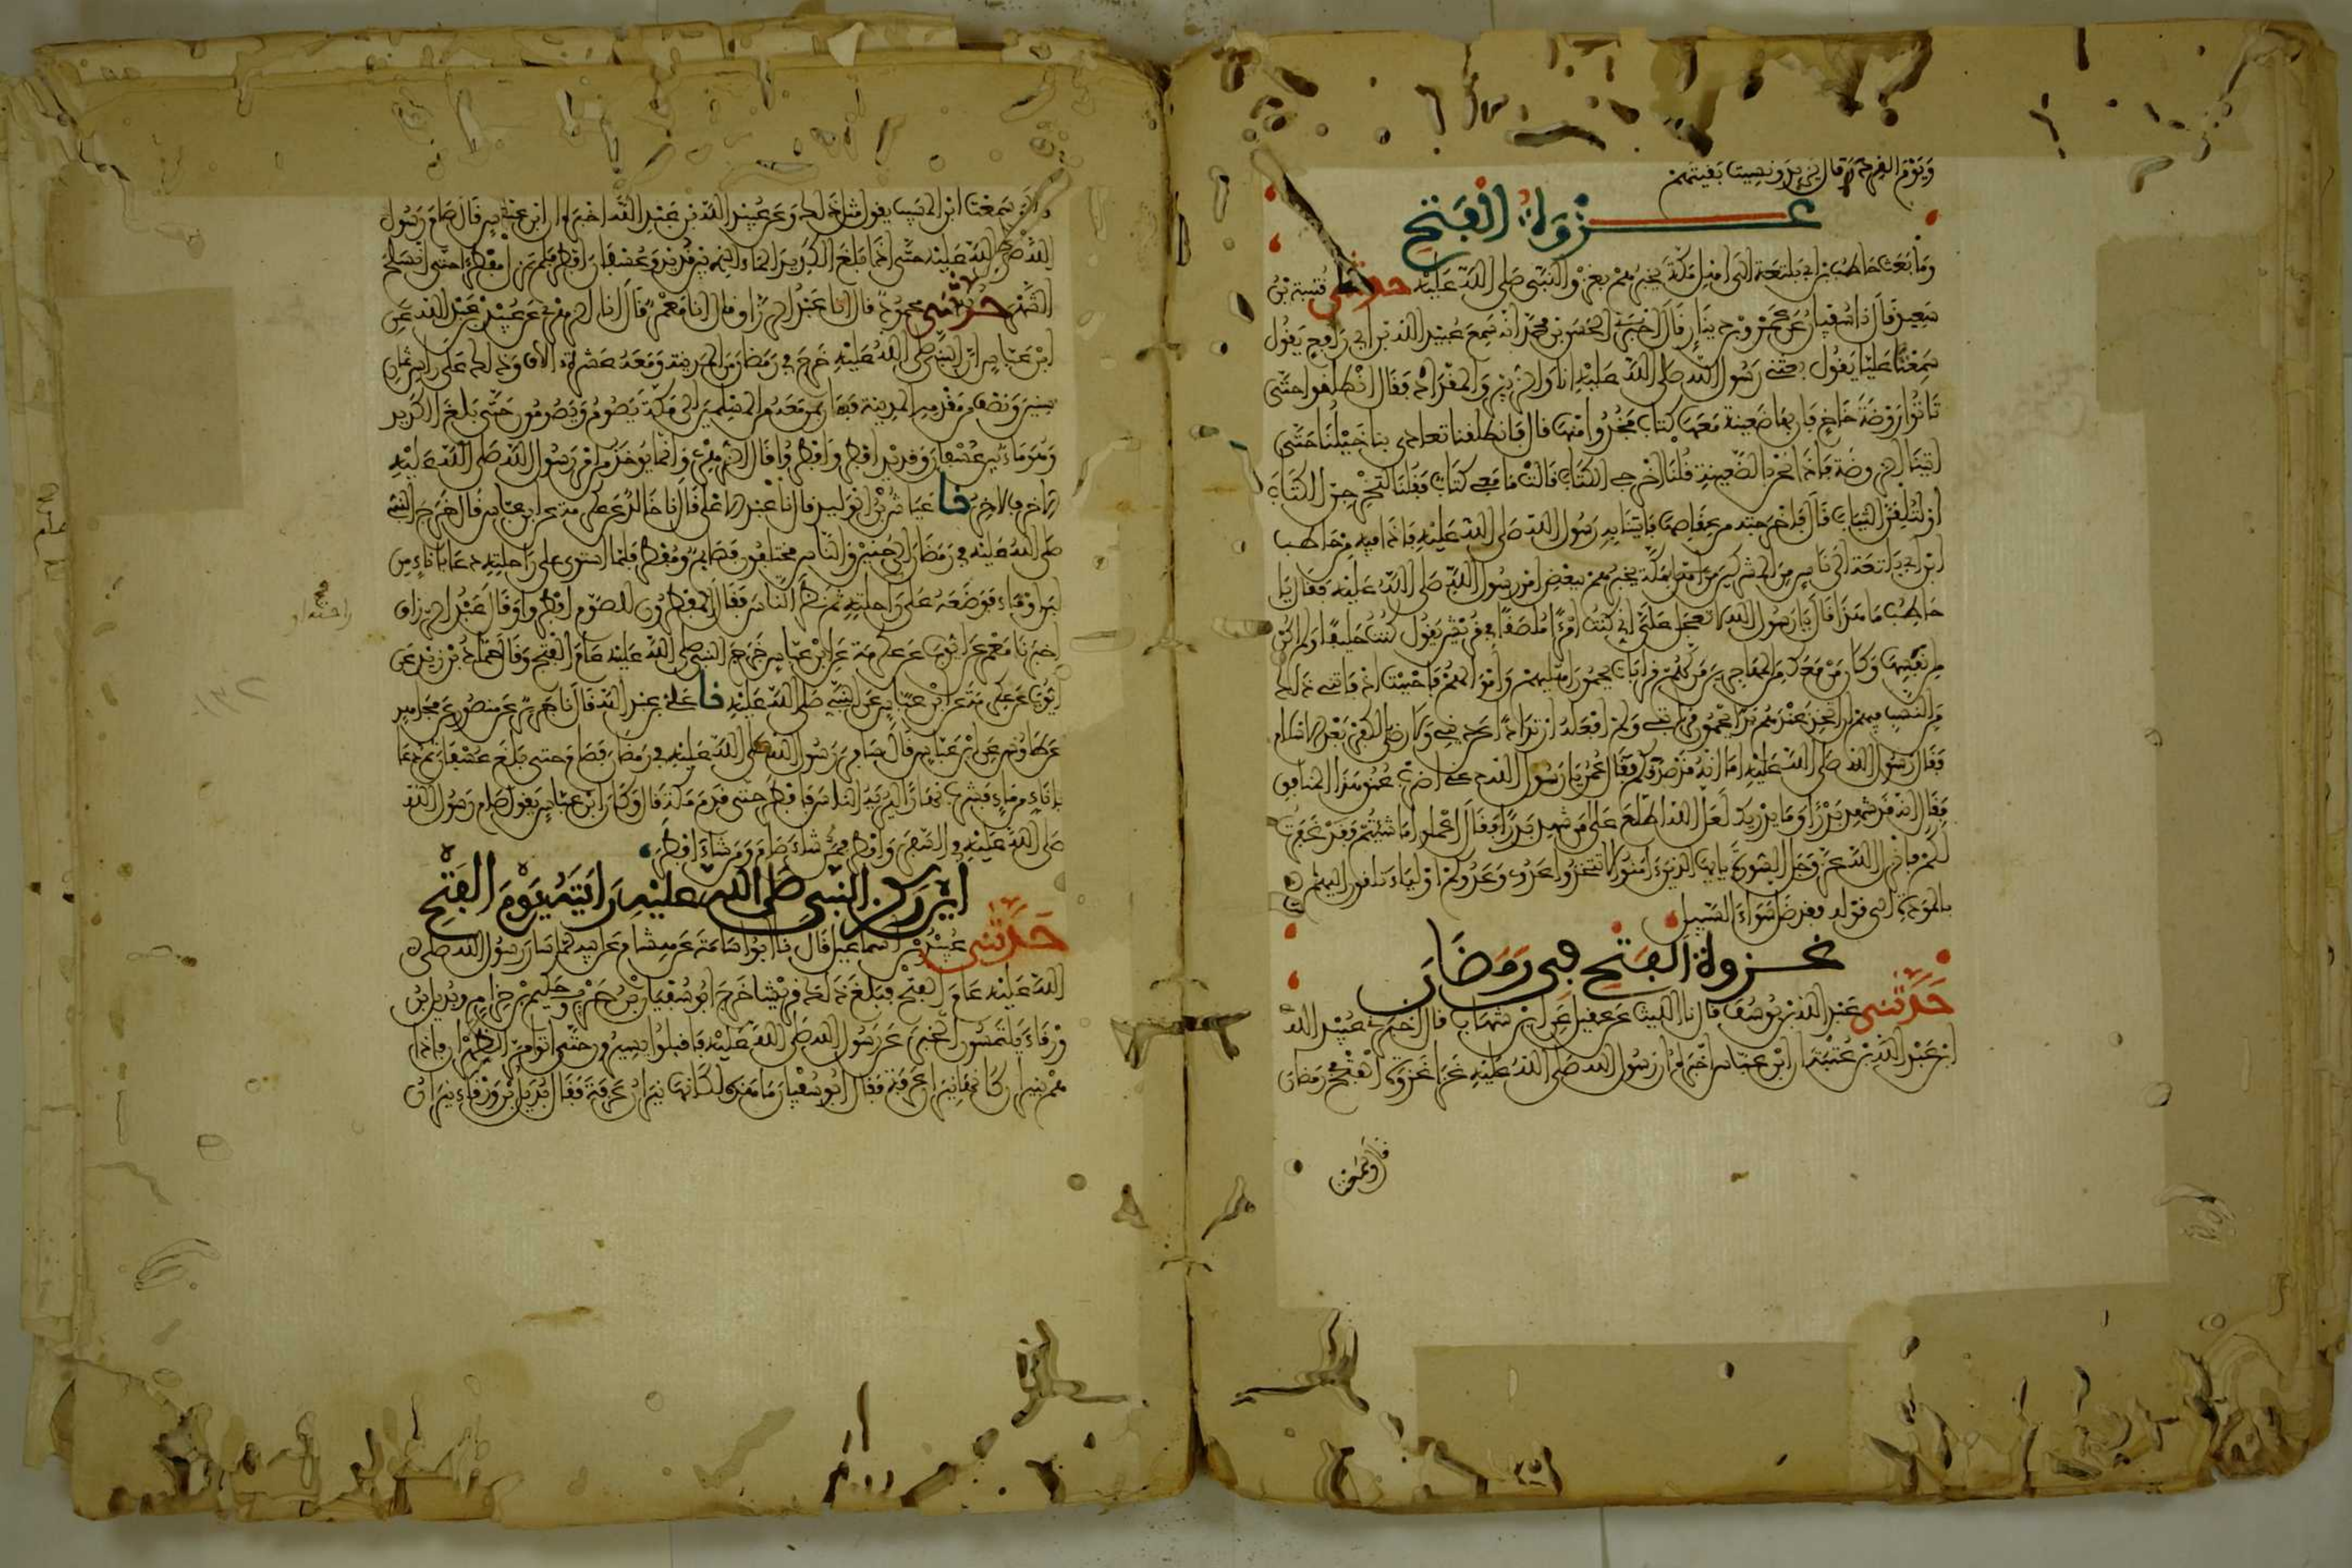 ويوم القرد قال يزيد ونسيت بقيتهن
غزوة الفتح
وما بعث حاطب بن ابي بلتعة الى اهل مكة يخبرهم بغزو النبي صلى الله عليه حدثنا قتيبة بن
سعيد قال نا سفيان عن عمرو بن دينار قال اخبرني الحسن بن محمد انه سمع عبيد الله بن ابي رافع يقول
سمعت عليا يقول بعثني رسول الله صلى الله عليه انا والزبير والمقداد فقال انطلقوا حتى
تاتوا روضة خاخ فان بها ظعينة معها كتاب فخذوا منها قال فانطلقنا تعادى بنا خيلنا حتى
اتينا الروضة فاذا نحن بالظعينة قلنا اخرجي الكتاب قالت ما معي كتاب فقلنا لتخرجن الكتاب
او لنلقين الثياب قال فاخرجته من عقاصها فاتينا به رسول الله صلى الله عليه فاذا فيه من حاطب
ابن ابي بلتعة الى ناس من المشركين من اهل مكة يخبرهم ببعض امر رسول الله صلى الله عليه فقال يا
حاطب ما هذا قال يا رسول الله لا تعجل علي اني كنت امرءا ملصقا في قريش يقول كنت حليفا ولم اكن
من انفسها وكان من معك من المهاجرين من لهم قرابات يحمون اهليهم واموالهم فاحببت اذ فاتني ذلك
من النسب فيهم ان اتخذ عندهم يدا يحمون قرابتي ولم افعله ارتدادا عن ديني ولا رضى بالكفر بعد الاسلام
فقال رسول الله صلى الله عليه اما انه قد صدقكم فقال عمر يا رسول الله دعني اضرب عنق هذا المنافق
فقال انه قد شهد بدرا وما يدريك لعل الله اطلع على من شهد بدرا فقال اعملوا ما شئتم فقد غفرت
لكم فانزل الله عز وجل السورة يايها الذين ءامنوا لا تتخذوا عدوي وعدوكم اولياء تلقون اليهم
بالمودة الى قوله فقد ضل سواء السبيل
غزوة الفتح في رمضان
حدثني عبد الله بن يوسف قال نا الليث عن عقيل عن ابن شهاب قال اخبرني عبيد الله
ابن عبد الله بن عتبة ان ابن عباس اخبره ان رسول الله صلى الله عليه غزا غزوة الفتح في رمضان
قال وسمعت
قال وسمعت ابن المسيب يقول مثل ذلك وعن عبيد الله بن عبد الله اخبره ان ابن عباس قال صام رسول
الله صلى الله عليه حتى اذا بلغ الكديد الماء الذي بين قديد وعسفان افطر فلم يزل مفطرا حتى انسلخ
الشهر حدثني محمود قال انا عبد الرزاق قال انا معمر قال انا الزهري عن عبيد بن عبد الله عن
ابن عباس ان النبي صلى الله عليه خرج في رمضان من المدينة ومعه عشرة الاف وذلك على راس ثمان
سنين ونصف من مقدمه المدينة فسار بمن معه من المسلمين الى مكة يصوم ويصومون حتى بلغ الكديد
وهو ماء بين عسفان وقديد افطر وافطروا قال الزهري وانما يوخذ من امر رسول الله صلى الله عليه
الاخر فالاخر نا عياش بن الوليد قال نا عبد الاعلى قال نا خالد عن عكرمة عن ابن عباس قال خرج النبي
صلى الله عليه في رمضان الى حنين والناس مختلفون فصائم ومفطر فلما استوى على راحلته دعا باناء من
لبن او ماء فوضعه على راحلته ثم نظر الناس فقال المفطرون للصوم افطروا وقال عبد الرزاق
اخبرنا معمر عن ايوب عن عكرمة عن ابن عباس خرج النبي صلى الله عليه عام الفتح وقال حماد بن زيد عن
ايوب عن عكرمة عن ابن عباس عن النبي صلى الله عليه نا علي بن عبد الله قال نا جرير عن منصور عن مجاهد
عن طاوس عن ابن عباس قال صام رسول الله صلى الله عليه في رمضان فصام حتى بلغ عسفان ثم دعا
باناء من ماء فشرب نهارا ليريه الناس فافطر حتى قدم مكة قال وكان ابن عباس يقول صام رسول الله
صلى الله عليه في السفر وافطر فمن شاء صام ومن شاء افطر
اين ركز النبي صلى الله عليه رايته يوم الفتح
حدثني عبيد بن اسماعيل قال نا ابو اسامة عن هشام عن ابيه لما سار رسول الله صلى
الله عليه عام الفتح فبلغ ذلك قريشا خرج ابو سفيان بن حرب وحكيم بن حزام وبديل بن
ورقاء يلتمسون الخبر عن رسول الله صلى الله عليه فاقبلوا يسيرون حتى اتوا مر الظهران فاذا
هم بنيران كانها نيران عرفة فقال ابو سفيان ما هذه لكانها نيران عرفة فقال بديل بن ورقاء نيران